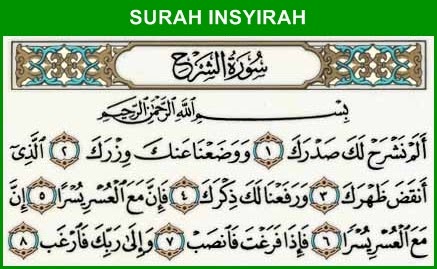 SURAH INSYIRAH
سُورَةُ الشَّرْحِ
بِسْمِ اللَّهِ الرَّحْمَٰنِ الرَّحِيمِ
أَلَمْ نَشْرَحْ لَكَ صَدْرَكَ ١ وَوَضَعْنَا عَنكَ وِزْرَكَ ٢ الَّذِىٓ
أَنقَضَ ظَهْرَكَ ٣ وَرَفَعْنَا لَكَ ذِكْرَكَ ٤ فَإِنَّ مَعَ الْعُسْرِ يُسْرًا ٥ إِنَّ
مَعَ الْعُسْرِ يُسْرًا ٦ فَإِذَا فَرَغْتَ فَانصَبْ ٧ وَإِلَىٰ رَبِّكَ فَارْغَب ٨